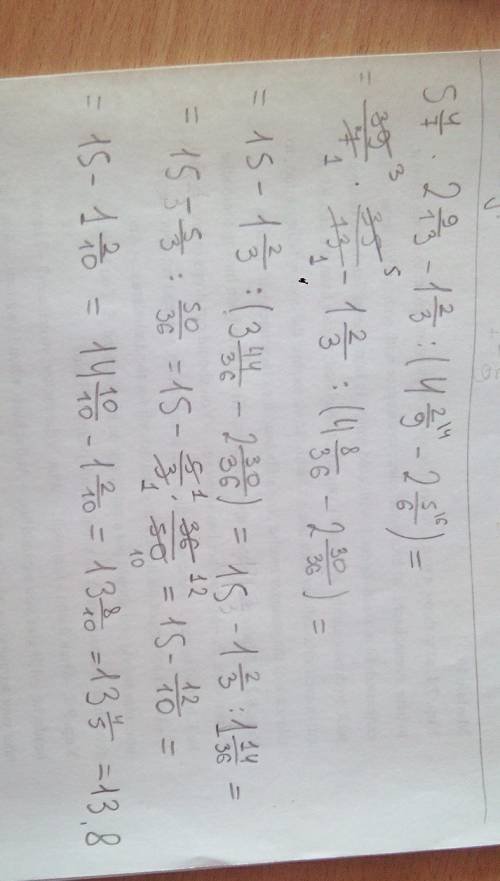 5 4/7 · 2 9/13 - 1 2/3 : (4 2/9 - 2 5/6) =
= 39/7 · 35/13 - 1 2/3 : (4 8/36 - 2 30/36) =
= 15 - 1 2/3 : (3 44/36 - 2 30/36) = 15 - 1 2/3 : 1 14/36 =
= 15 - 5/3 : 50/36 = 15 - 5/3 · 36/50 = 15 - 12/10 =
= 15 - 1 2/10 = 14 10/10 - 1 2/10 = 13 8/10 = 13 4/5 = 13,8